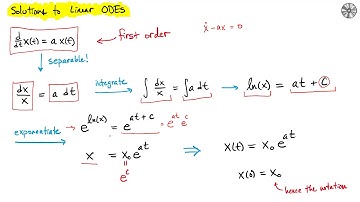 Solutions to Linear ODEs
d/dt x(t) = a x(t)
first order
ẋ - ax = 0
separable!
dx/x = a dt
integrate
∫ dx/x = ∫ a dt
ln(x) = at + C
exponentiate
e^ln(x) = e^(at + C) = e^at e^C
x = x₀ e^at
e^C
⇒ x(t) = x₀ e^at
x(0) = x₀
hence the notation